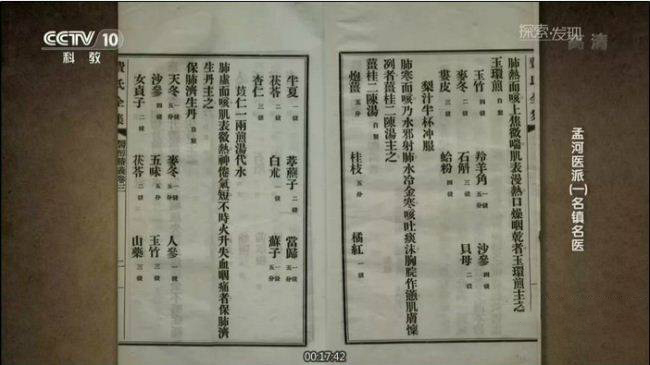 CCTV 10
科教
探索·发现
高清
孟河医派(一)名镇名医
肺熱而咳上焦微喘肌表漫熱口燥咽乾者玉環煎主之
玉環煎 自製
玉竹 四錢 羚羊角 一錢五分 沙參 四錢
麥冬 二錢 石斛 三錢 貝母 二錢
蔞皮 三錢 蛤粉 四錢
梨汁半杯沖服
肺寒而咳乃水邪射肺水冷金寒咳吐痰沫胸脘作懣肌膚懍
冽者薑桂二陳湯主之
薑桂二陳湯 自製
炮薑 五分 桂枝 五分 橘紅 一錢
半夏 一錢 葶藶子 二錢 當歸 一錢五分
茯苓 二錢 白朮 一錢 蘇子 一錢五分
杏仁 三錢
苡仁一兩煎湯代水
肺虛而咳肌表微熱神倦氣短不時火升失血咽痛者保肺濟
生丹主之
保肺濟生丹 自製
天冬 一錢五分 麥冬 一錢五分 人參 一錢
沙參 四錢 五味 五分 玉竹 三錢
女貞子 二錢 茯苓 二錢 山藥 三錢
費氏全集 醫醇賸義卷三 二
00:17:42